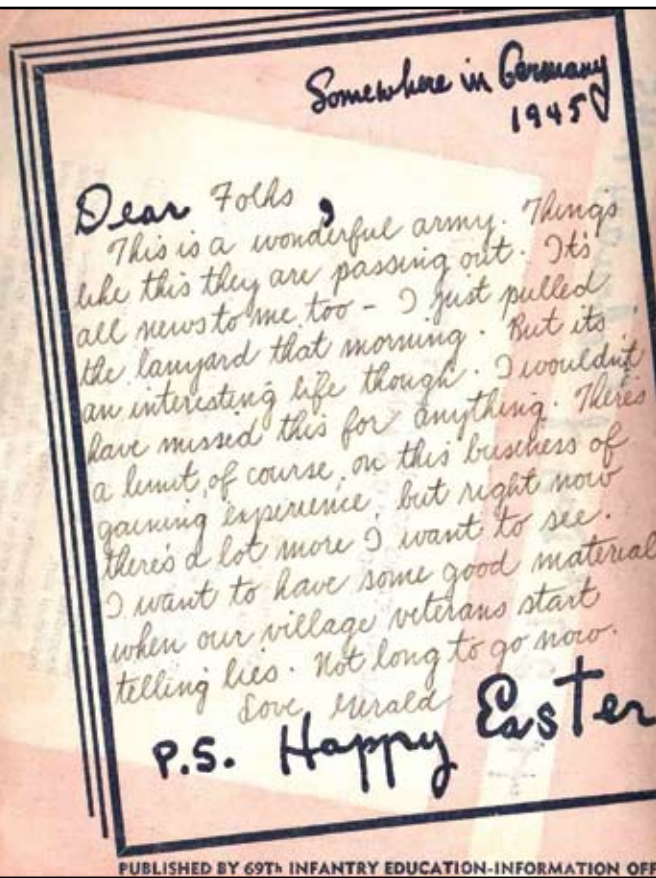 Somewhere in Germany
1945
Dear Folks,
This is a wonderful army. Things
like this they are passing out. It's
all news to me too - I just pulled
the lanyard that morning. But its
an interesting life though. I wouldn't
have missed this for anything. There's
a limit, of course, on this business of
gaining experience, but right now
there's a lot more I want to see.
I want to have some good material
when our village veterans start
telling lies. Not long to go now.
Love, Gerald
P.S. Happy Easter
PUBLISHED BY 69Th INFANTRY EDUCATION-INFORMATION OFF